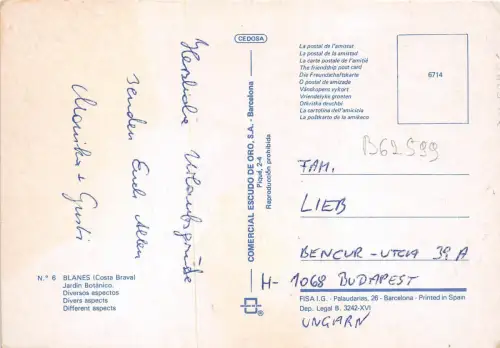 Herzliche Urlaubsgrüße
senden Euch Allen
Monika + Gusti
N.º 6 BLANES (Costa Brava)
Jardín Botánico.
Diversos aspectos
Divers aspects
Different aspects
CEDOSA
COMERCIAL ESCUDO DE ORO, S.A. - Barcelona
Picud, 2-4
Reproducción prohibida
La postal de l'amistat
La postal de la amistad
La carte postale de l'amitié
The friendship post card
Die Freundschaftskarte
O postal de amizade
Vänskapens vykort
Vriendelijke groeten
La cartolina dell'amicizia
La poŝtkarto de la amikeco
6714
B62599
FAM.
LIEB
BENCUR-UTCA 39. A
H- 1068 BUDAPEST
FISA I.G. - Palaudarias, 26 - Barcelona - Printed in Spain
Dep. Legal B. 3242-XVI
UNGARN